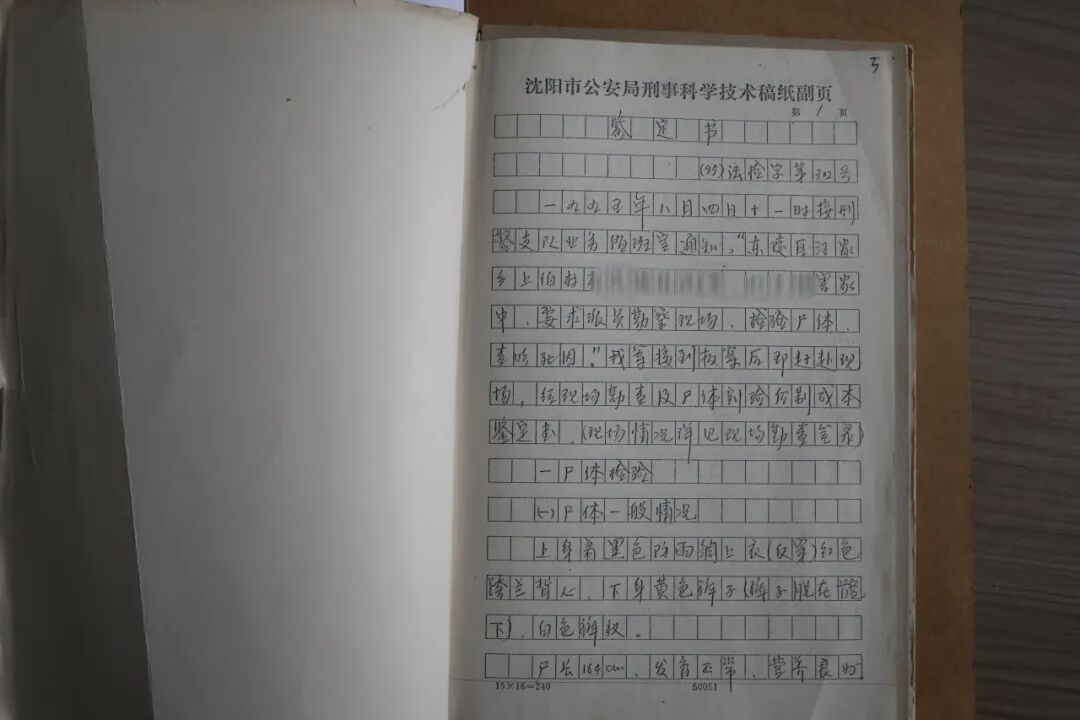 3
沈阳市公安局刑事科学技术稿纸副页
第 1 页
鉴定书
(95)法检字第302号
一九九五年八月四日十一时接刑
警支队业务值班室通知。"东陵区汪家
乡上伯村 害家
中,要求派员勘察现场,检验尸体,
查明死因。"我等接到报案后即赶赴现
场,经现场勘查及尸体剖验后制成本
鉴定书。(现场情况详见现场勘查笔录)
一尸体检验
(一)尸体一般情况
上身着黑色防雨绸上衣(反穿)红色
跨兰背心,下身黄色裤子(裤子脱在髋
下),白色裤衩。
尸长164cm,发育正常,营养良好
15×16=240
50051